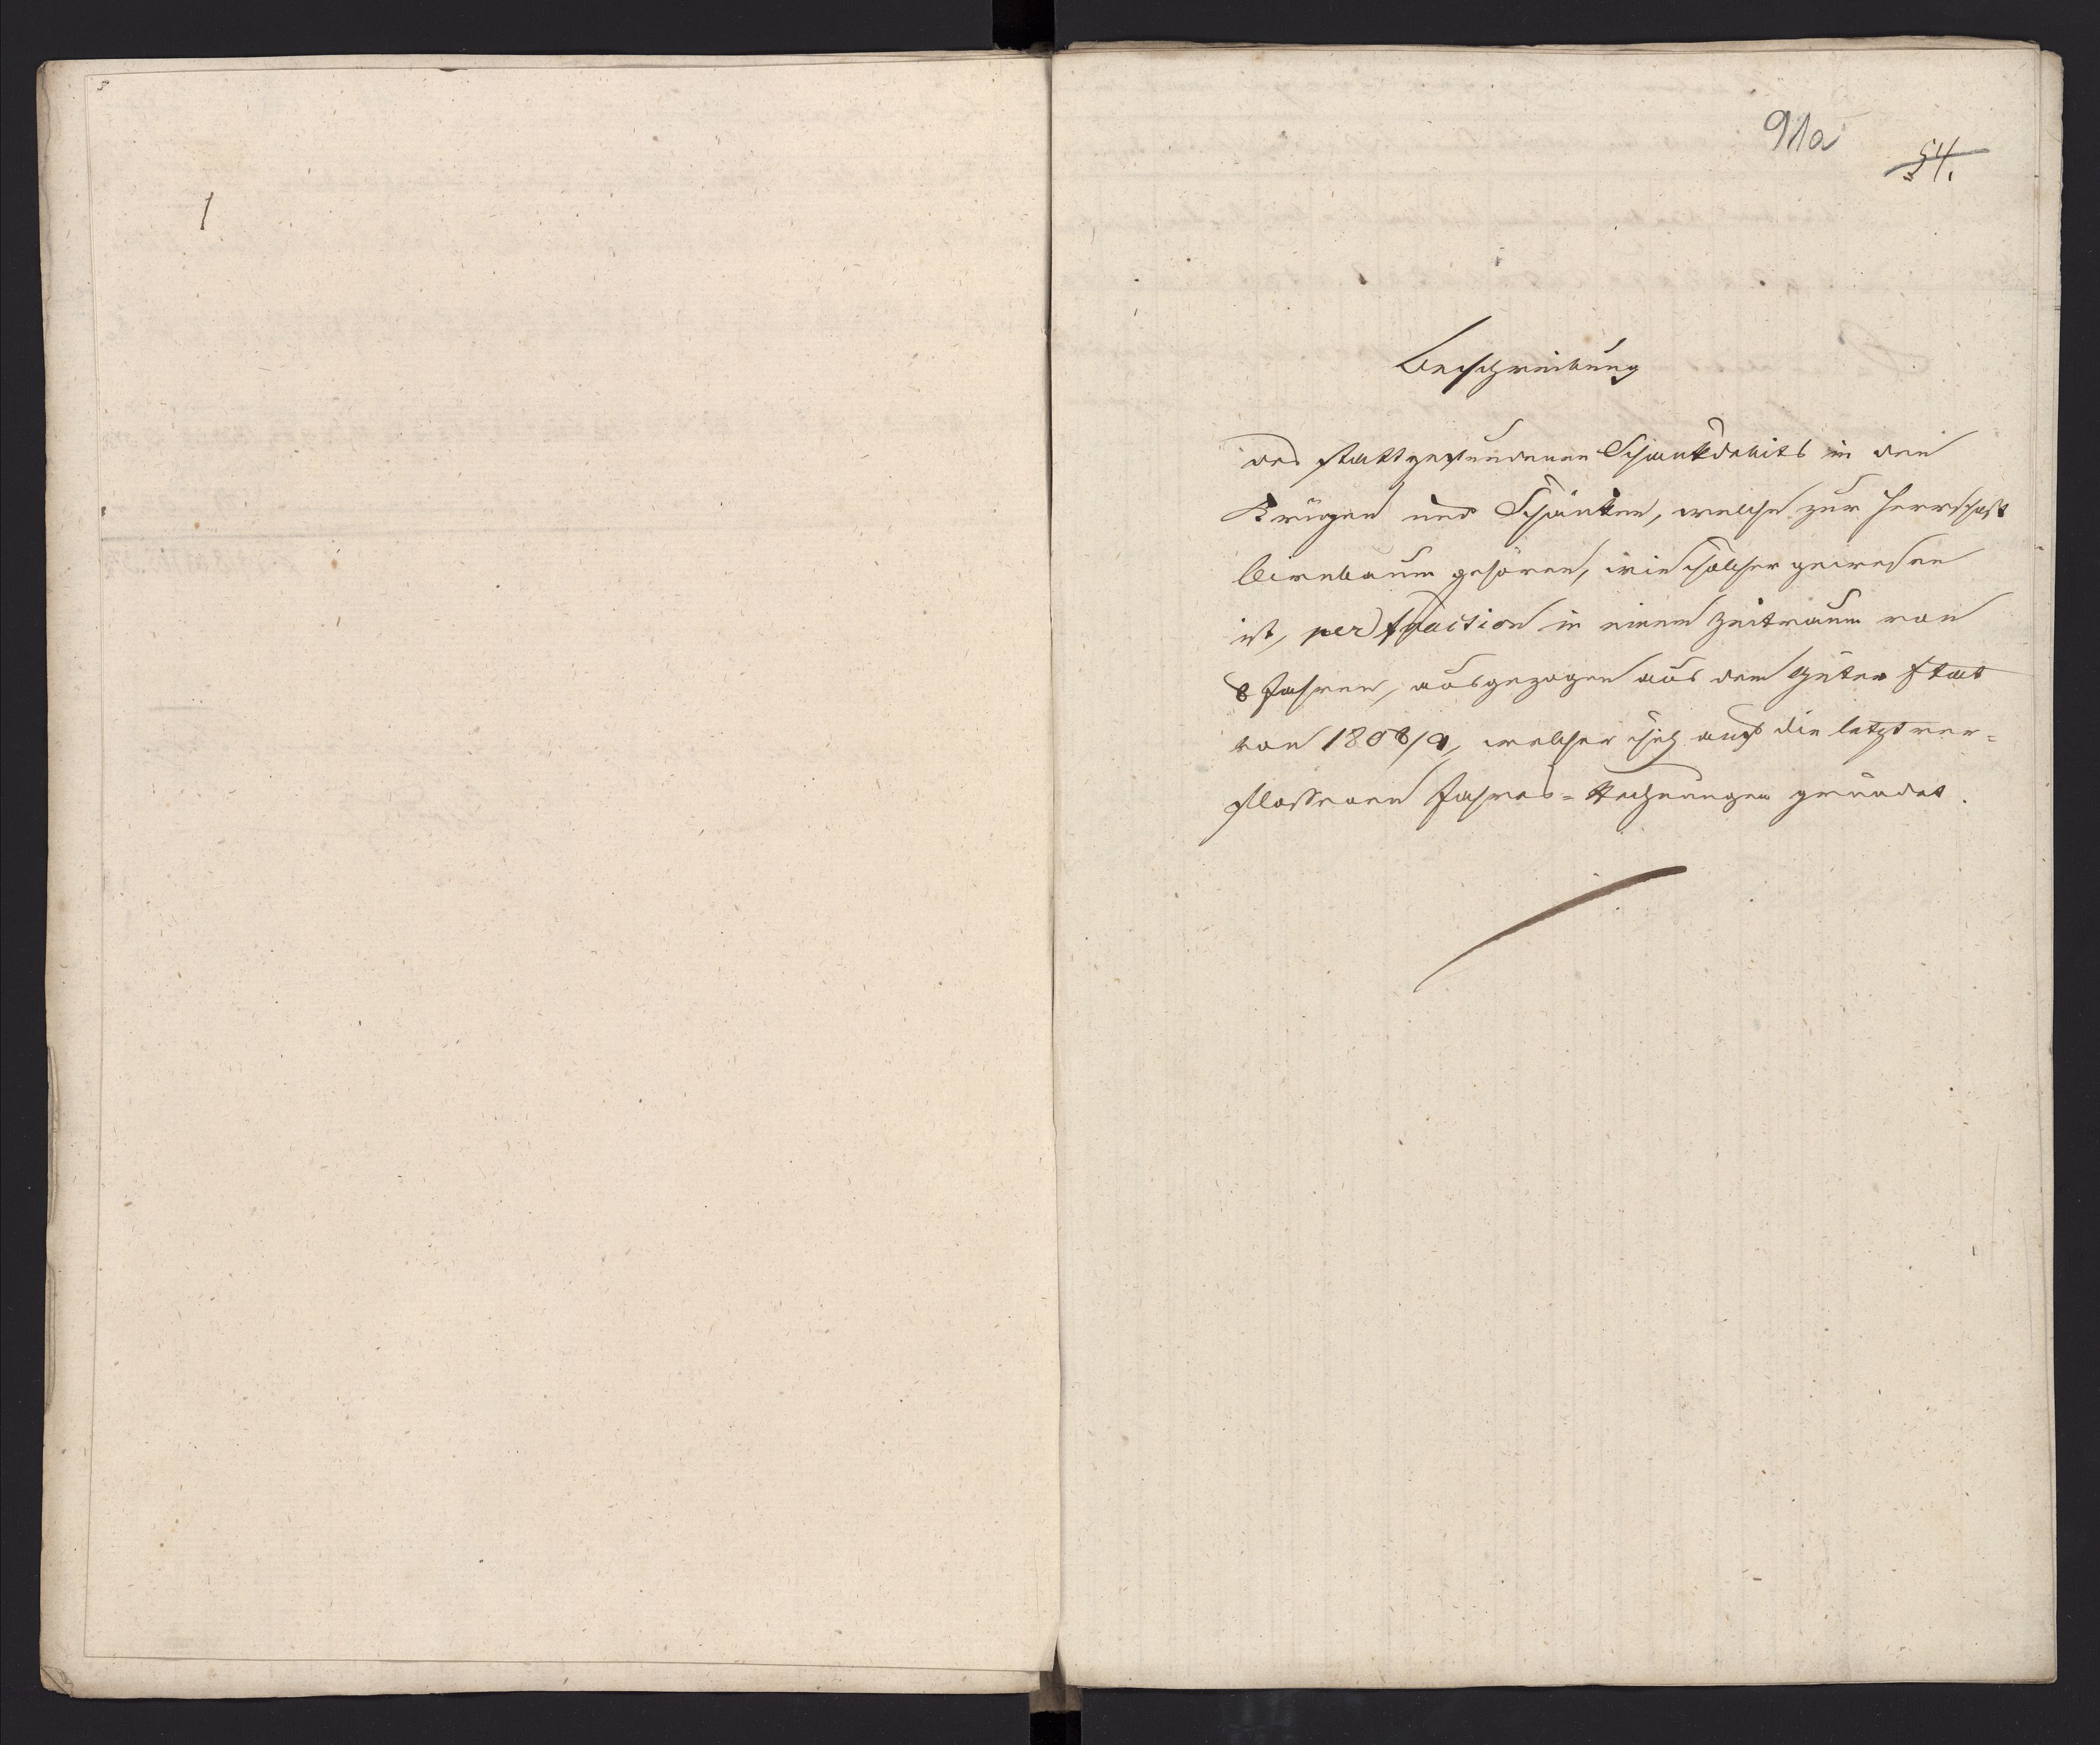 91a
54.
Beschreibung
des stattgefundenen Schankdebits in den
Krügen und Schänken, welche zur Herrschaft
Birnbaum gehören, wie solcher gewesen
ist, per fraction in einem Zeitraum von
8 Jahren, ausgezogen aus dem Güter Etat
von 1808/9, welcher sich auf die letzt ver=
flossenen Jahres=Rechnungen gründet.